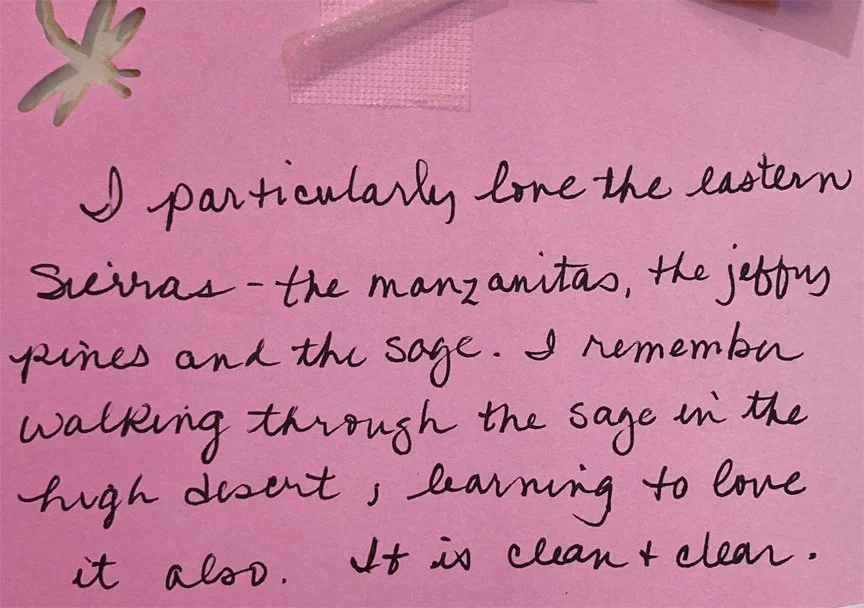 I particularly love the eastern
Sierras - the manzanitas, the jeffrys
pines and the sage. I remember
walking through the sage in the
high desert, learning to love
it also. It is clean + clear.